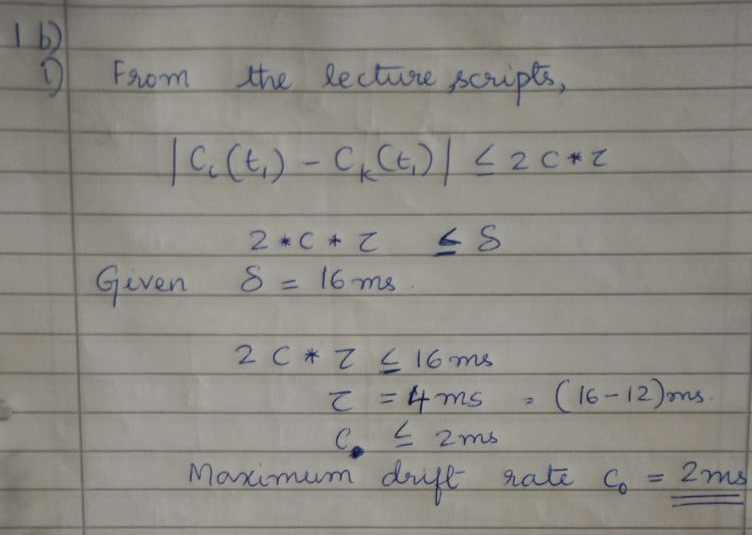 1 b)
i) From the lecture scripts,
|Cᵢ(t₁) - Cₖ(t₁)| ≤ 2 C * τ
2 * C * τ ≤ δ
Given δ = 16 ms.
2 C * τ ≤ 16 ms
τ = 4 ms = (16-12) ms.
C₀ ≤ 2 ms
Maximum drift rate C₀ = 2 ms